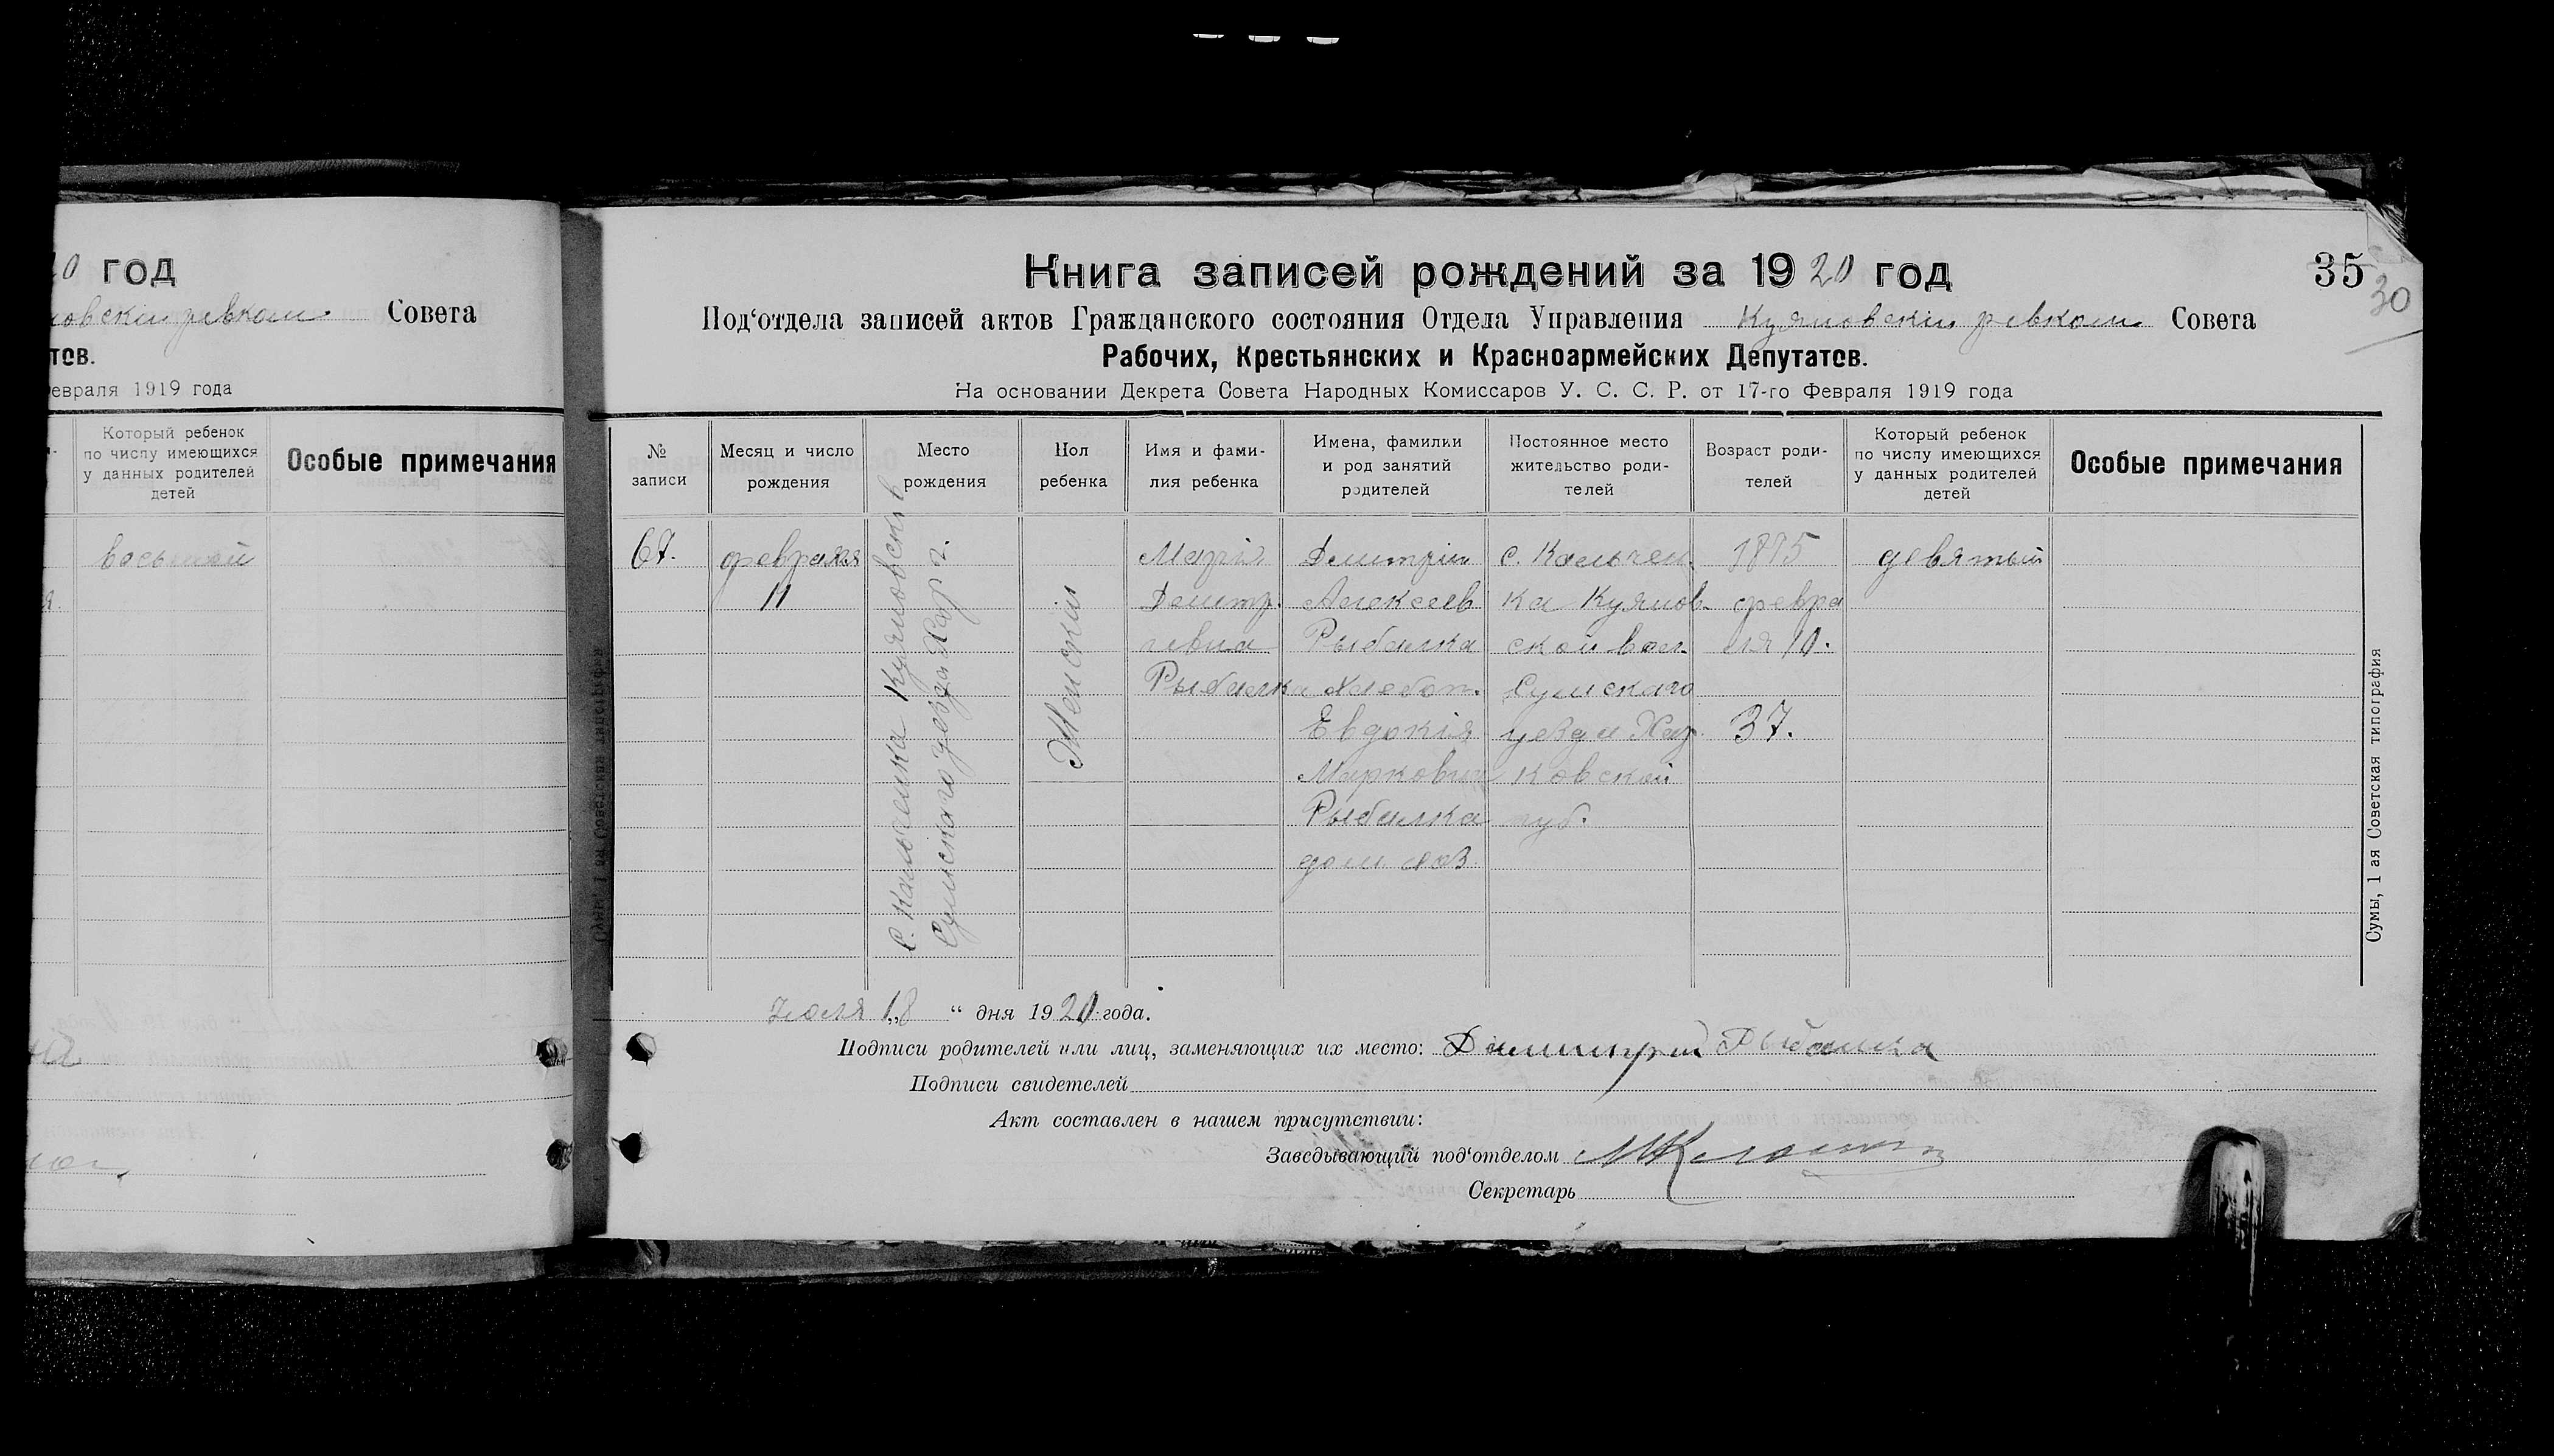 20 год
новскій ревком Совета
тов.
евраля 1919 года
Который ребенок
по числу имеющихся
у данных родителей
детей
Особые примечания
восьмой
Книга записей рождений за 1920 год
35
30
Под‘отдела записей актов Гражданского состояния Отдела Управления Куяновскій ревком Совета
Рабочих, Крестьянских и Красноармейских Депутатов.
На основании Декрета Совета Народных Комиссаров У. С. С. Р. от 17-го Февраля 1919 года
№
записи
Месяц и число
рождения
Место
рождения
Пол
ребенка
Имя и фами-
лия ребенка
Имена, фамилии
и род занятий
родителей
Постоянное место
жительство роди-
телей
Возраст роди-
телей
Который ребенок
по числу имеющихся
у данных родителей
детей
Особые примечания
67.
февраля
11
Сумскаго уезда Хар г.
Женскій
Марія
Дмитр.
іевна
Рыбалка
Дмитрій
Алексеев
Рыбалка
хлебоп.
Евдокія
Марковна
Рыбалка
дом хоз
с.
ка Куянов-
ской вол.
Сумскаго
уезда Хар
ковской
губ.
1875
февра
ля 10.
37.
девятый
Июля 18 “ дня 1920 года.
Подписи родителей или лиц, заменяющих их место: Димитрий Рыбалка
Подписи свидетелей
Акт составлен в нашем присутствии:
Заведывающий под‘отделом
Секретарь
Сумы, 1 ая Советская типография